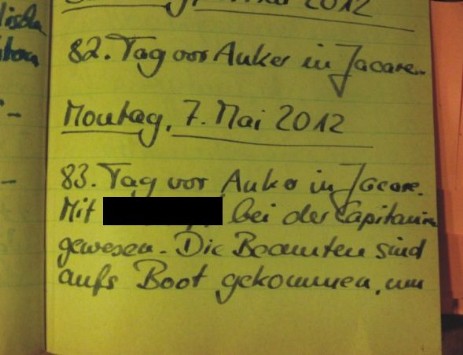 2012
82. Tag vor Anker in Jacare.
Montag, 7. Mai 2012
83. Tag vor Anker in Jacare.
Mit bei der Capitanie
gewesen. Die Beamten sind
aufs Boot gekommen, um